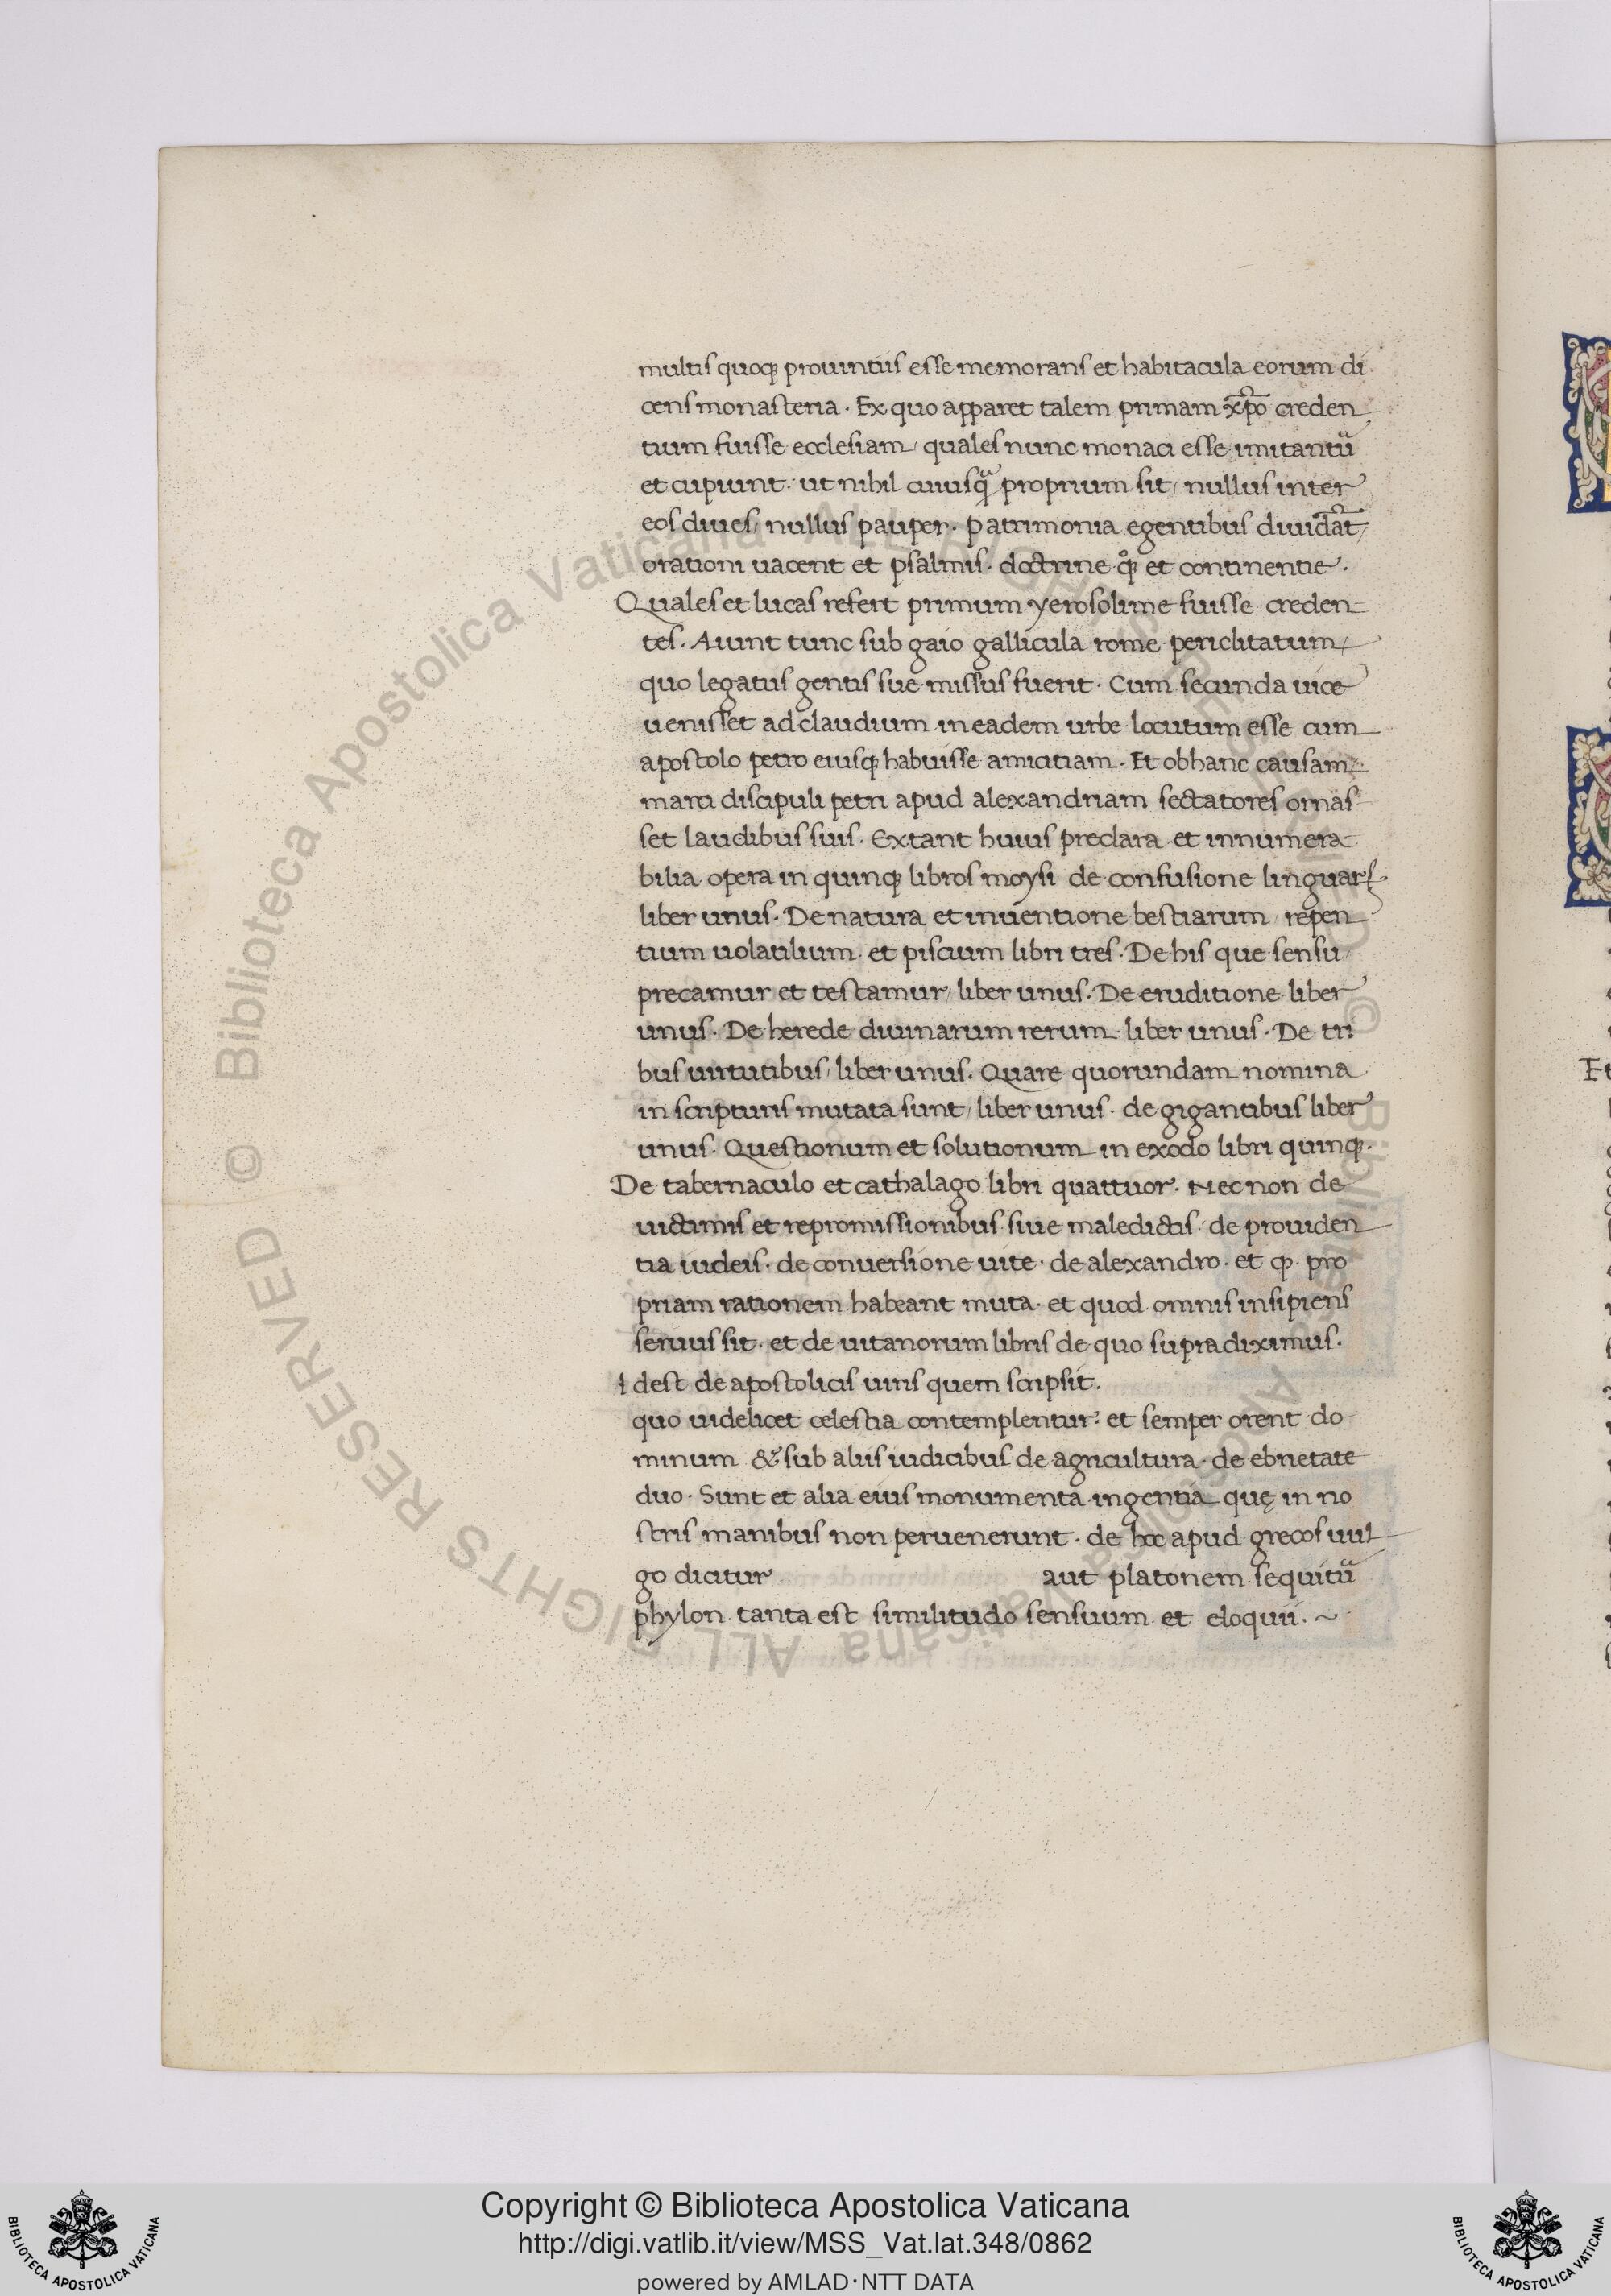 multis quoq; prouintiis esse memorans et habitacula eorum di
cens monasteria. Ex quo apparet talem primam xp̄o creden
tium fuisse ecclesiam, quales nunc monaci esse imitantu᷑
et cupiunt. ut nihil cuiusqᷓ proprium sit, nullus inter
eos diues, nullus pauper. patrimonia egentibus
orationi uacent et psalmis. doctrine et continentie.
Quales et lucas refert primum yerosolime fuisse creden
tes. Aiunt tunc sub gaio gallicula rome periclitatum,
quo legatus gentis sue missus fuerit. Cum secunda uice
uenisset ad claudium in eadem urbe locutum esse cum
apostolo petro eiusq; habuisse amicitiam. Et ob hanc causam
marci discipuli petri apud alexandriam sectatores ornas
set laudibus suis. Extant huius preclara et innumera
bilia opera in quinq; libros moysi de confusione linguarꝝ
liber unus. De natura et inuentione bestiarum, repen
tium uolatilium et piscium libri tres. De his que sensu
precamur et testamur, liber unus. De eruditione liber
unus. De herede diuinarum rerum liber unus. De tri
bus uirtutibus, liber unus. Quare quorundam nomina
in scripturis mutata sunt, liber unus. de gigantibus liber
unus. Questionum et solutionum in exodo libri quinq;.
De tabernaculo et cathalago libri quattuor. Nec non de
uictimis et repromissionibus siue maledictis. de prouiden
tia iudeis. de conuersione uite. de alexandro. et ꝙ pro
priam rationem habeant muta. et quod omnis insipiens
seruus sit. et de uitanorum libris de quo supra diximus.
idest de apostolicis uiris quem scripsit.
quo uidelicet celestia contemplentur. et semper orent do
minum & sub aliis iudicibus de agricultura. de ebrietate
duo. Sunt et alia eius monumenta ingentia quę in no
stris manibus non peruenerunt. de hoc apud grecos uul
go dicitur aut platonem sequitu᷑
phylon tanta est similitudo sensuum et eloquii. ~
Et
© Biblioteca Apostolica Vaticana ALL RIGHTS RESERVED
Copyright © Biblioteca Apostolica Vaticana
http://digi.vatlib.it/view/MSS_Vat.lat.348/0862
powered by AMLAD·NTT DATA
BIBLIOTECA APOSTOLICA VATICANA
BIBLIOTECA APOSTOLICA VATICANA